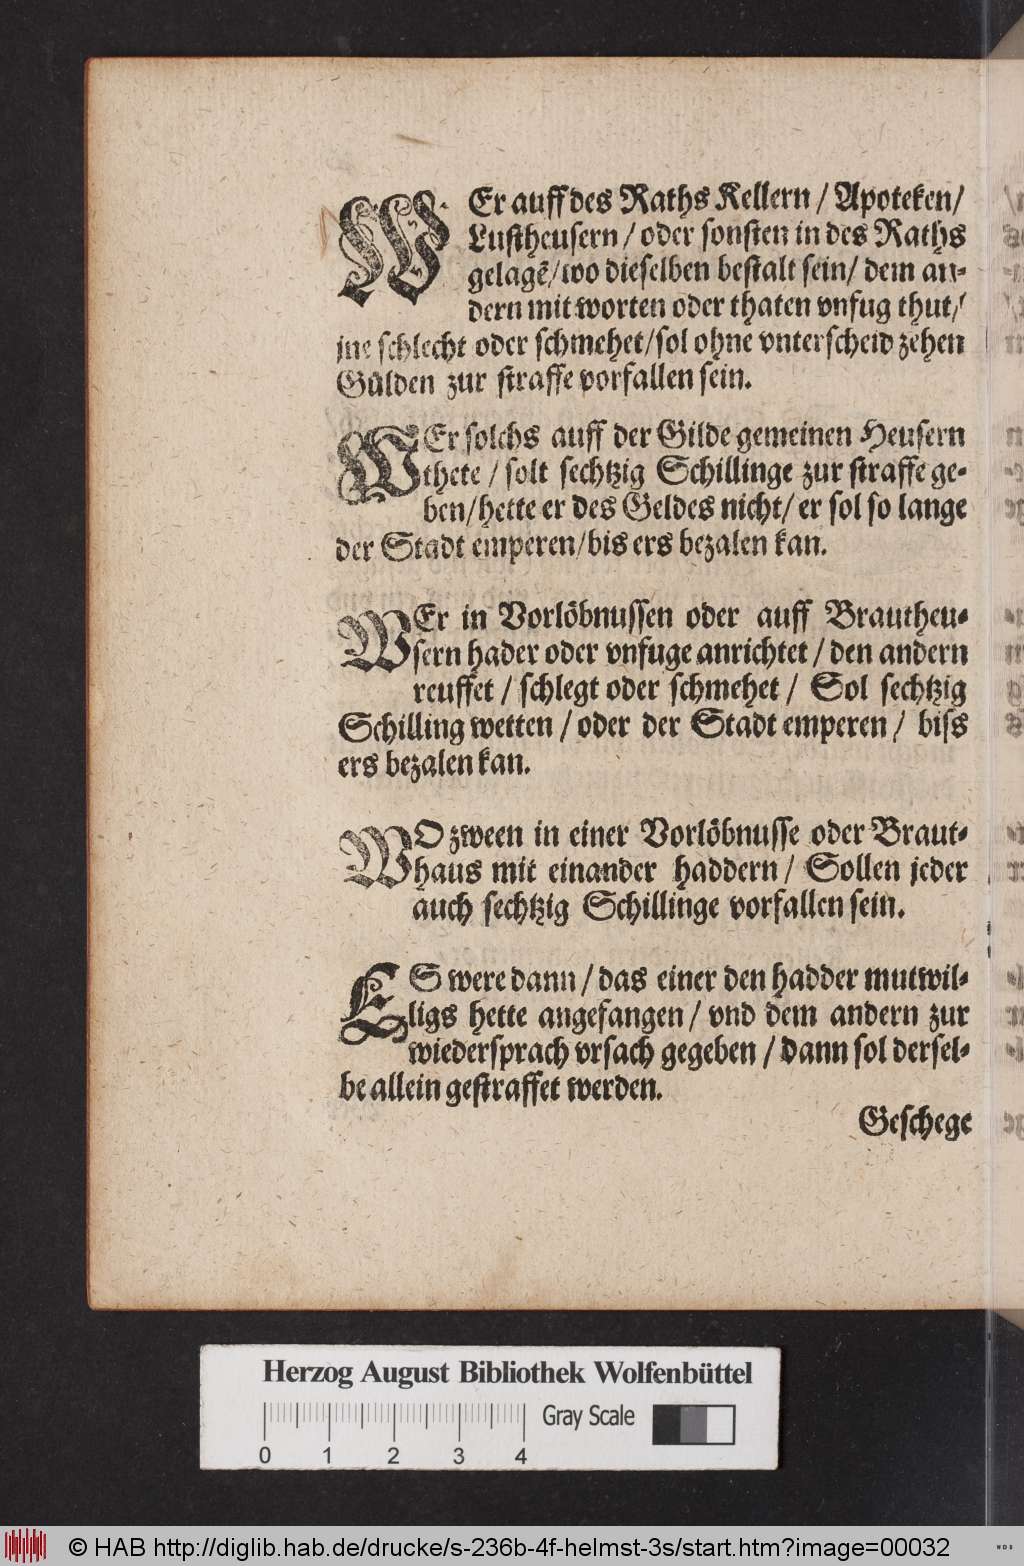 WEr auff des Raths Kellern / Apoteken/
Lustheusern / oder sonsten in des Raths
gelagē/wo dieselben bestalt sein/ dem an-
dern mit worten oder thaten vnfug thut/
jne schlecht oder schmehet/sol ohne vnterscheid zehen
Gülden zur straffe vorfallen sein.
WEr solchs auff der Gilde gemeinen Heusern
thete / solt sechtzig Schillinge zur straffe ge-
ben/hette er des Geldes nicht/ er sol so lange
der Stadt emperen/bis ers bezalen kan.
WEr in Vorlöbnussen oder auff Brautheu-
sern hader oder vnfuge anrichtet / den andern
reuffet / schlegt oder schmehet / Sol sechtzig
Schilling wetten / oder der Stadt emperen / biss
ers bezalen kan.
WO zween in einer Vorlöbnusse oder Braut-
haus mit einander haddern / Sollen jeder
auch sechtzig Schillinge vorfallen sein.
ES were dann / das einer den hadder mutwil-
ligs hette angefangen / vnd dem andern zur
wiedersprach vrsach gegeben / dann sol dersel-
be allein gestraffet werden.
Geschege
Herzog August Bibliothek Wolfenbüttel
Gray Scale
0 1 2 3 4
© HAB http://diglib.hab.de/drucke/s-236b-4f-helmst-3s/start.htm?image=00032